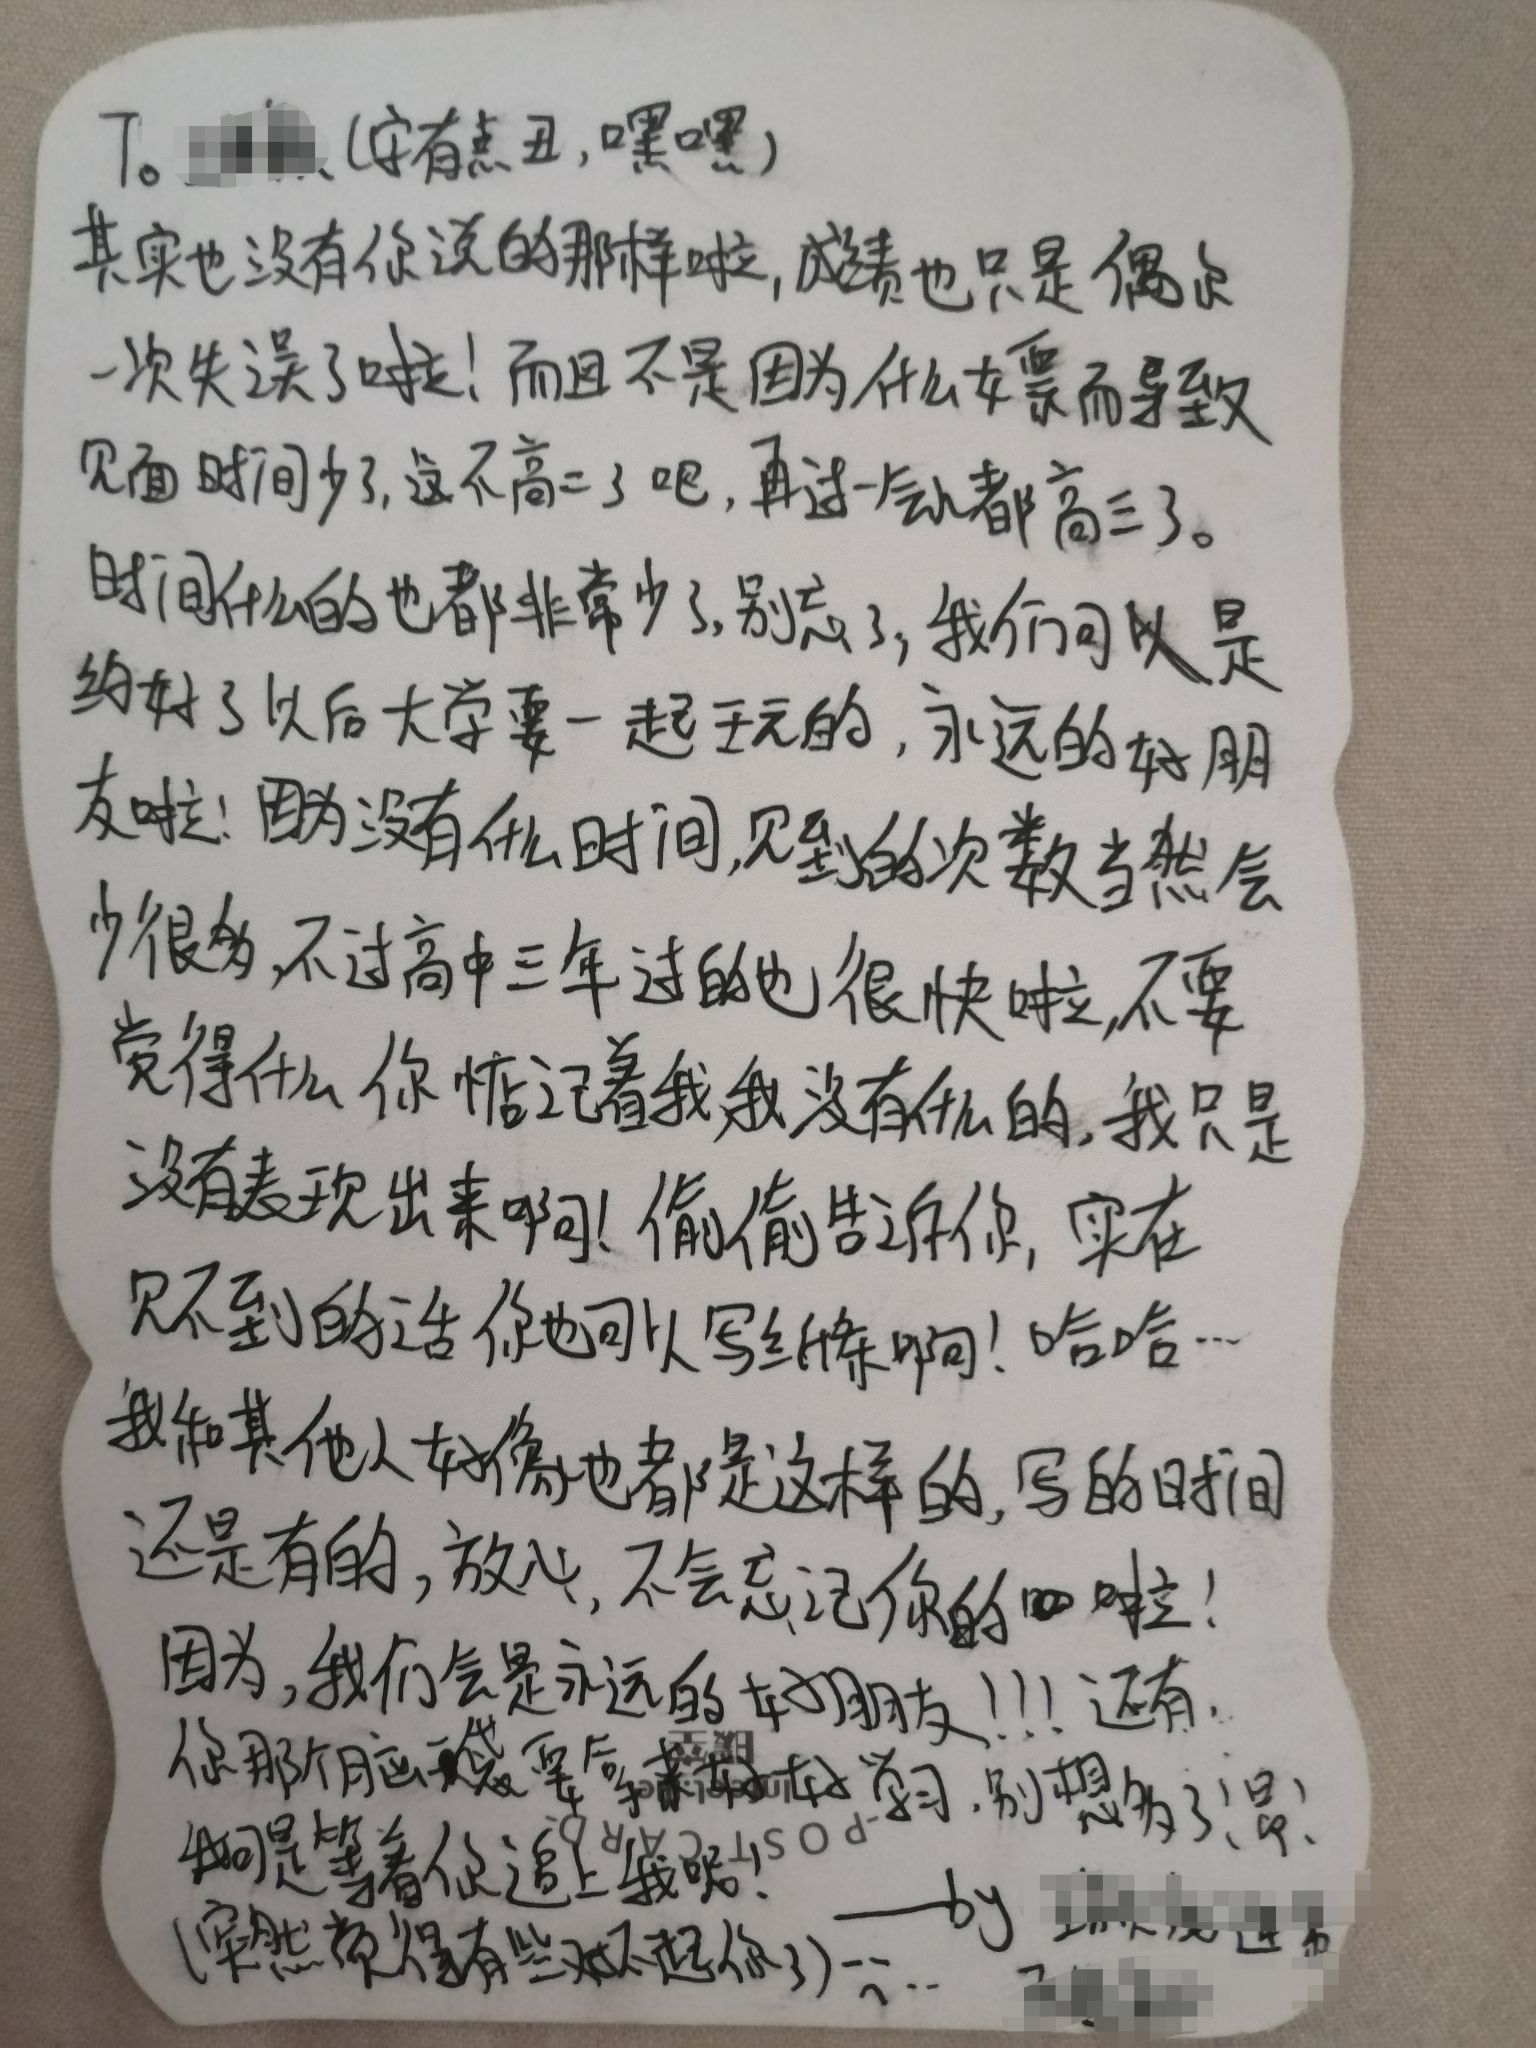 To (字有点丑,嘿嘿)
其实也没有你说的那样啦,成绩也只是偶尔
一次失误了啦!而且不是因为什么嫖而导致
见面时间少了,这不高二了吧,再过一会儿都高三了。
时间什么的也都非常少了,别忘了,我们可以是
约好了以后大学要一起玩的,永远的好朋
友啦!因为没有什么时间,见到的次数当然会
少很多,不过高中三年过的也很快啦,不要
觉得什么你惦记着我,我没有什么的,我只是
没有表现出来啊!偷偷告诉你,实在
见不到的话你也可以写纸条啊!哈哈…
我和其他人好像也都是这样的,写的时间
还是有的,放心,不会忘记你的啦!
因为,我们会是永远的好朋友!!!还有,
你那个脑袋要拿来好好学习,别想多了
我可是等着你追上我呢!
——by
(突然觉得有些对不起你了)
-POSTCARD-